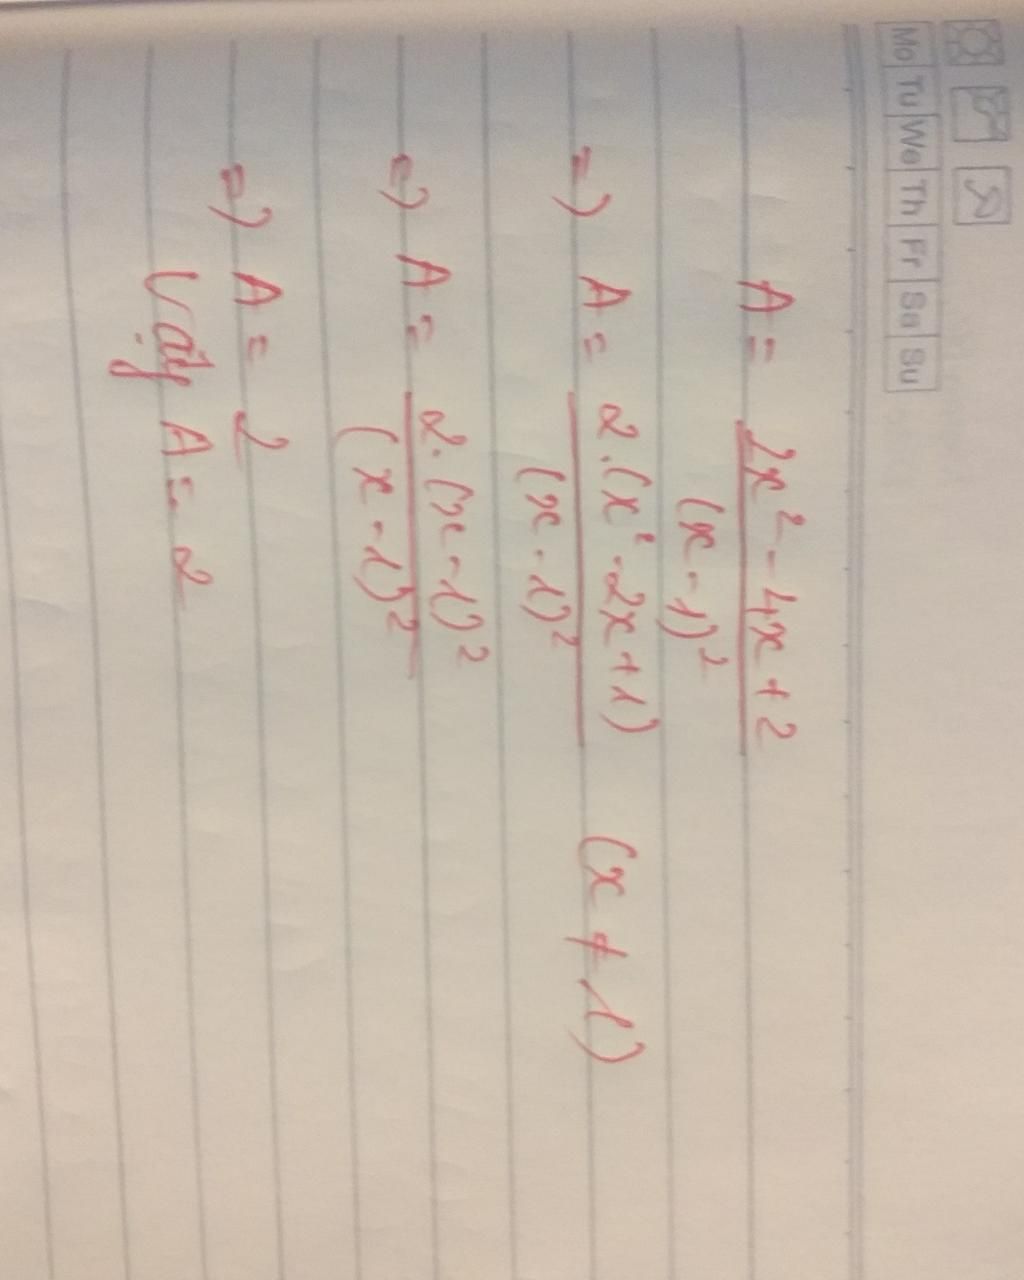 Mo Tu We Th Fr Sa Su
A = (2x² - 4x + 2) / (x - 1)²
=) A = 2.(x² - 2x + 1) / (x - 1)² (x ≠ 1)
=) A = 2.(x - 1)² / (x - 1)²
=) A = 2
Vậy A = 2